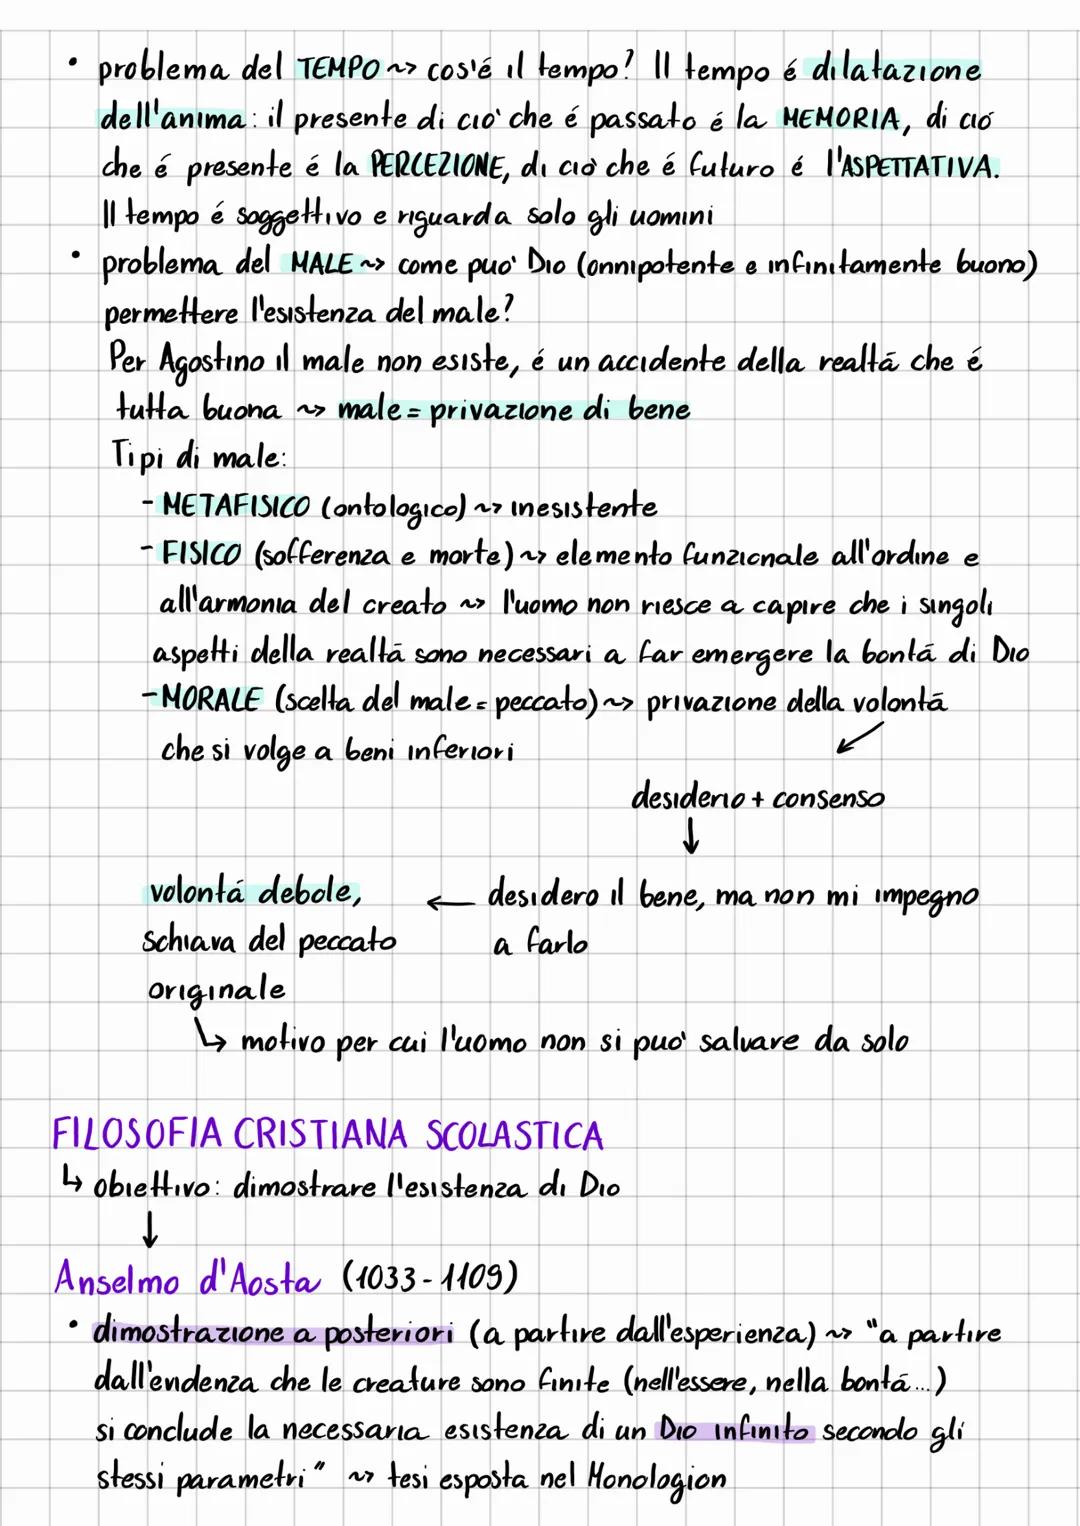 • problema del TEMPO ~> cos'é il tempo? Il tempo é dilatazione
dell'anima: il presente di cio' che é passato é la MEMORIA, di ció
che é presente é la PERCEZIONE, di ciò che é futuro é l'ASPETTATIVA.
Il tempo é soggettivo e riguarda solo gli uomini
• problema del MALE ~> come puo' Dio (onnipotente e infinitamente buono)
permettere l'esistenza del male?
Per Agostino il male non esiste, é un accidente della realtá che é
tutta buona ~> male = privazione di bene
Tipi di male:
- METAFISICO (ontologico) ~> inesistente
- FISICO (sofferenza e morte) ~> elemento funzionale all'ordine e
all'armonia del creato ~> l'uomo non riesce a capire che i singoli
aspetti della realtá sono necessari a far emergere la bontá di Dio
- MORALE (scelta del male = peccato) ~> privazione della volontá
che si volge a beni inferiori ↙
desiderio + consenso
↓
volontá debole, ← desidero il bene, ma non mi impegno
schiava del peccato a farlo
originale
↳ motivo per cui l'uomo non si puo' salvare da solo
FILOSOFIA CRISTIANA SCOLASTICA
↳ obiettivo: dimostrare l'esistenza di Dio
↓
Anselmo d'Aosta (1033-1109)
• dimostrazione a posteriori (a partire dall'esperienza) ~> "a partire
dall'evidenza che le creature sono finite (nell'essere, nella bontá...)
si conclude la necessaria esistenza di un Dio infinito secondo gli
stessi parametri" ~> tesi esposta nel Monologion